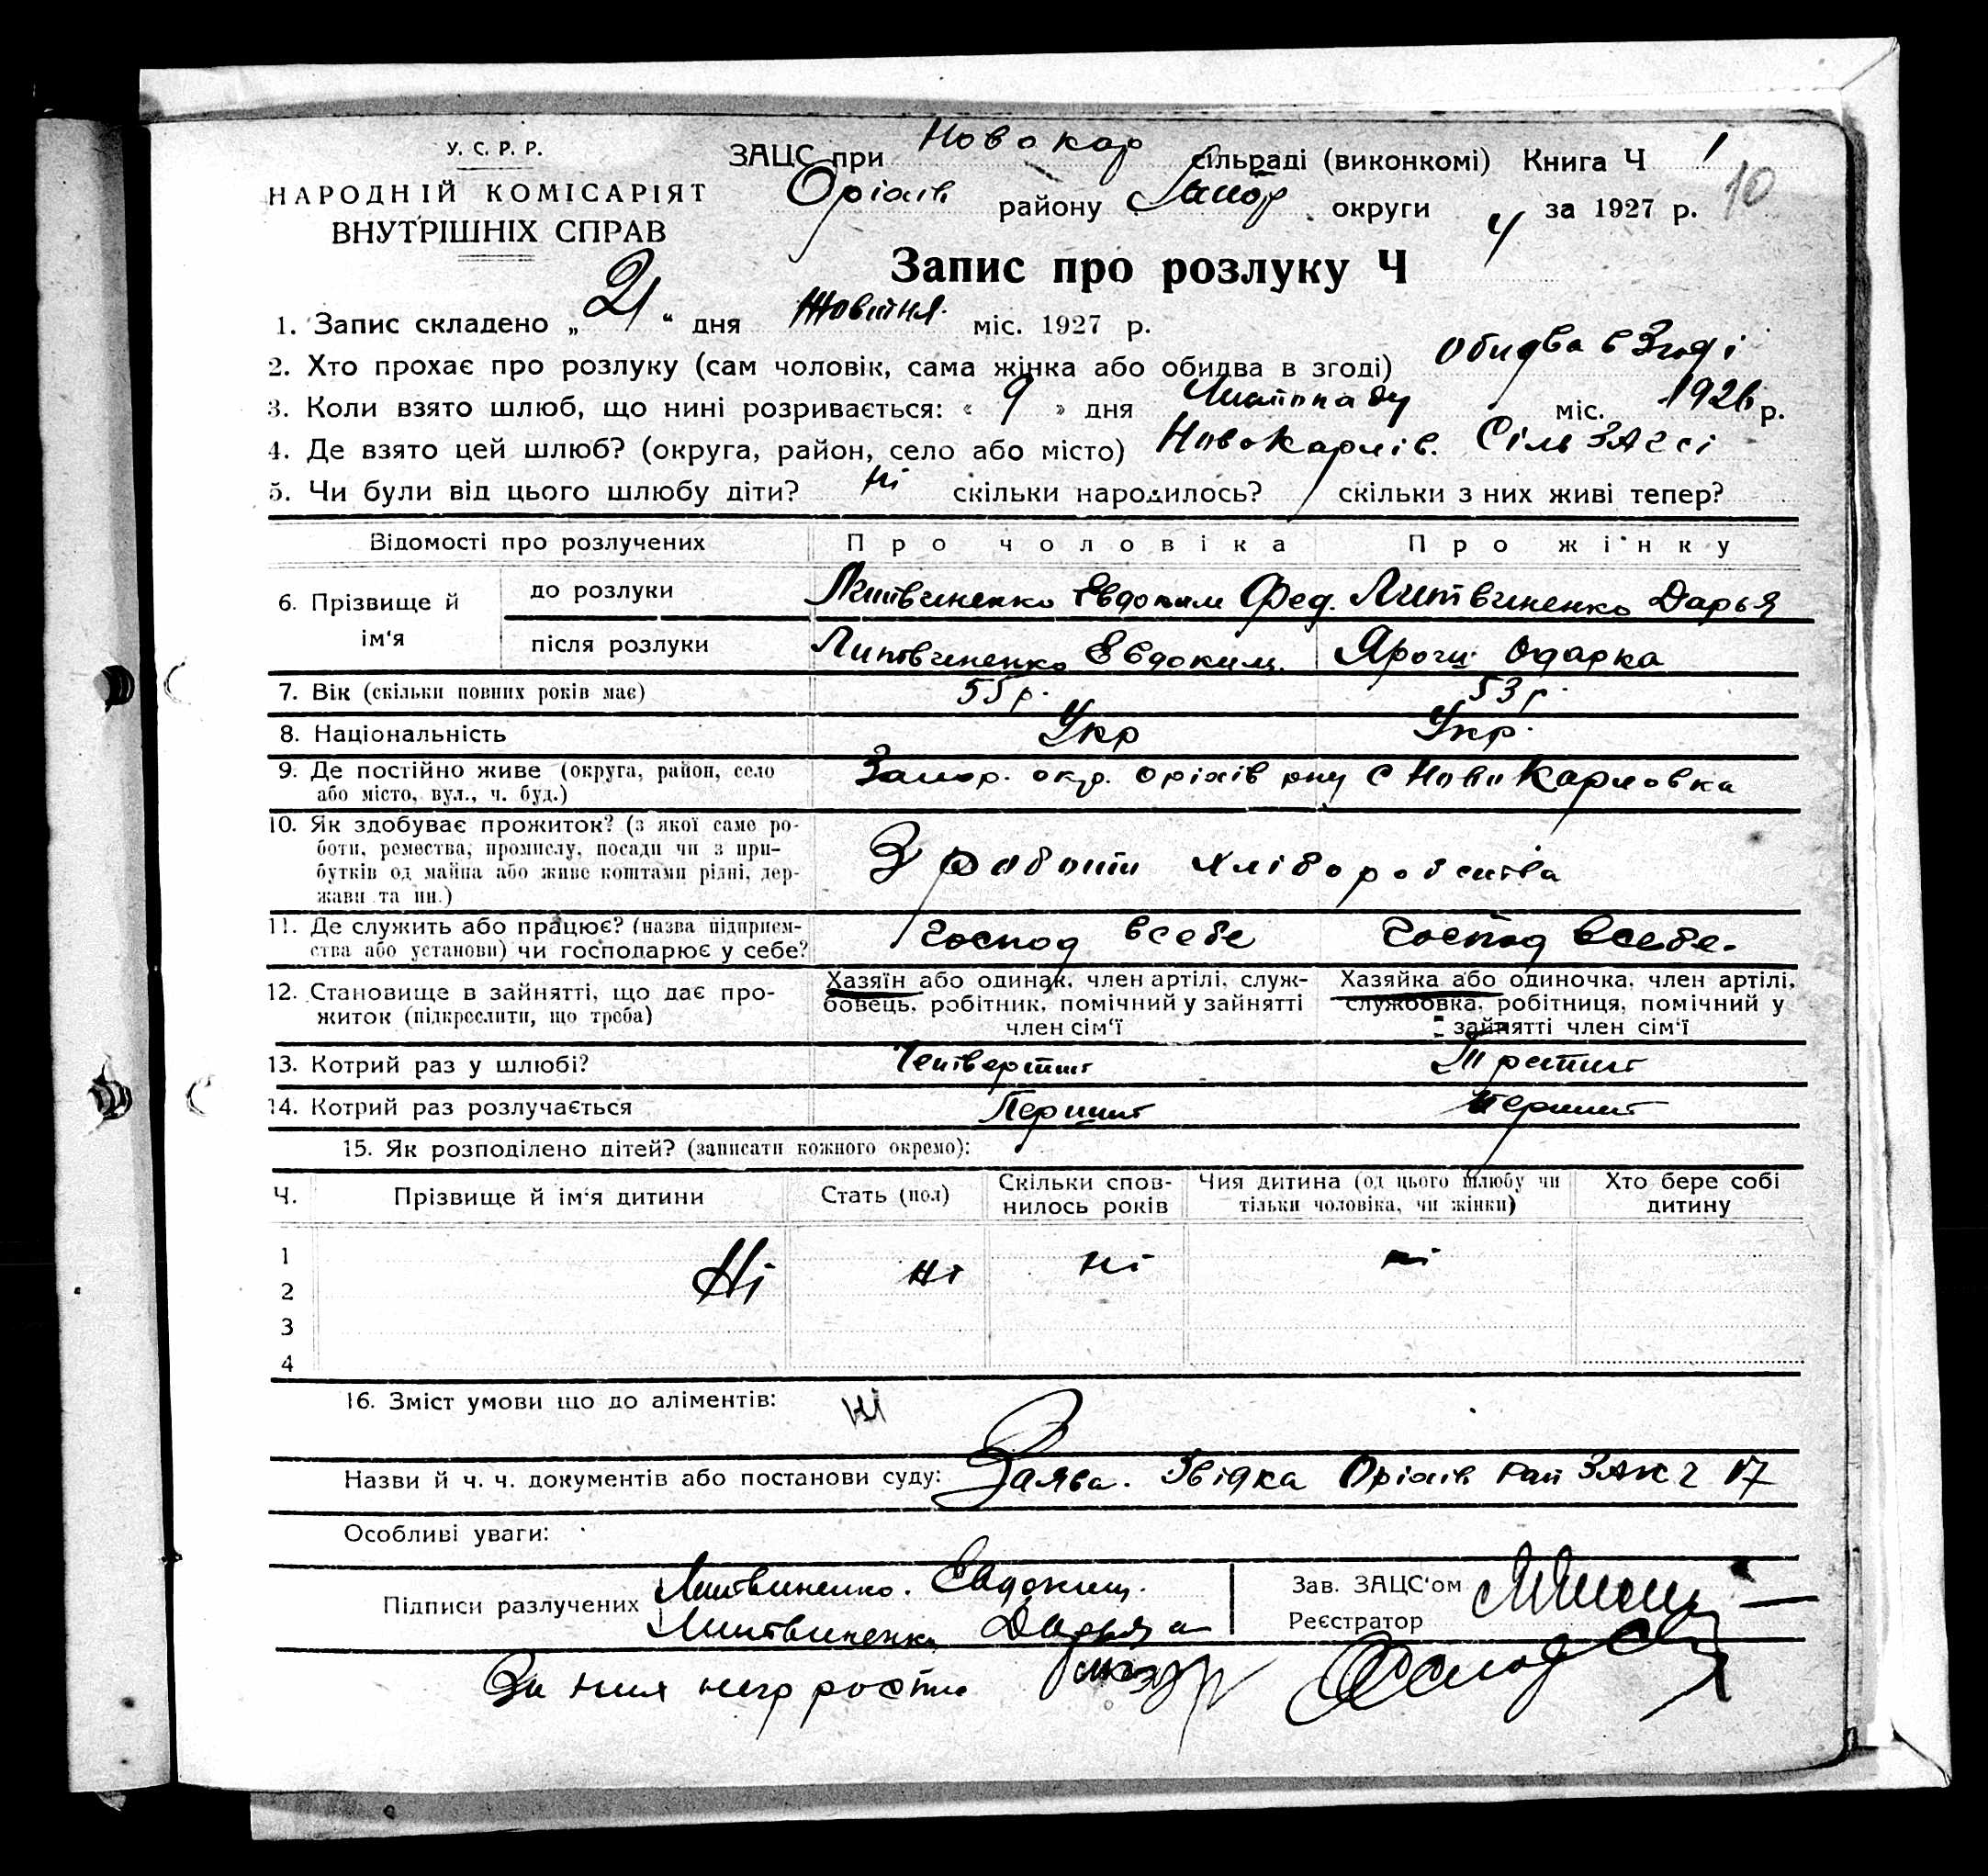 У. С. Р. Р.
НАРОДНІЙ КОМІСАРІЯТ
ВНУТРІШНІХ СПРАВ
ЗАЦС при Новокар сільраді (виконкомі) Книга Ч 1
10
Оріхів району Запор. округи за 1927 р.
Запис про розлуку Ч 4
1. Запис складено „21“ дня Жовтня міс. 1927 р.
2. Хто прохає про розлуку (сам чоловік, сама жінка або обидва в згоді) обидва в Згоді
3. Коли взято шлюб, що нині розривається: « 9 » дня Листопаду міс. 1926 р.
4. Де взято цей шлюб? (округа, район, село або місто) Новокарлів. Сіль ЗАГСі
5. Чи були від цього шлюбу діти? Ні скільки народилось? / скільки з них живі тепер?
Відомості про розлучених Про чоловіка Про жінку
6. Прізвище й ім‘я
до розлуки Литвиненко Евдоким Фед. Литвиненко Дарья
після розлуки Литвиненко Евдоким. Одарка
7. Вік (скільки повних років має) 55 р. 53 р.
8. Національність Укр Укр.
9. Де постійно живе (округа, район, село
або місто, вул., ч. буд.) Запор. окр. Оріхів рну с Ново Карловка
10. Як здобуває прожиток? (з якої саме ро-
боти, ремества, промислу, посади чи з при-
бутків од майна або живе коштами рідні, дер-
жави та ин.) З роботи хліборобства
11. Де служить або працює? (назва підприєм-
ства або установи) чи господарює у себе? Господ всебе Господ всебе.
12. Становище в зайнятті, що дає про-
житок (підкреслити, що треба)
Хазяїн або одинак, член артілі, служ-
бовець, робітник, помічний у зайнятті
член сім‘ї
Хазяйка або одиночка, член артілі,
службовка, робітниця, помічний у
зайнятті член сім‘ї
13. Котрий раз у шлюбі? Четвертий Третий
14. Котрий раз розлучається Перший Перший
15. Як розподілено дітей? (записати кожного окремо):
Ч. Прізвище й ім‘я дитини Стать (пол) Скільки спов-
нилось років Чия дитина (од цього шлюбу чи
тільки чоловіка, чи жінки) Хто бере собі
дитину
1 Ні ні ні ні
2
3
4
16. Зміст умови що до аліментів: ні
Назви й ч. ч. документів або постанови суду: Заява. Звідка Оріхів 17
Особливі уваги:
Підписи разлучених Литвиненко. Евдоким.
Литвиненко Дарья
Зав. ЗАЦС‘ом
Реєстратор
За них